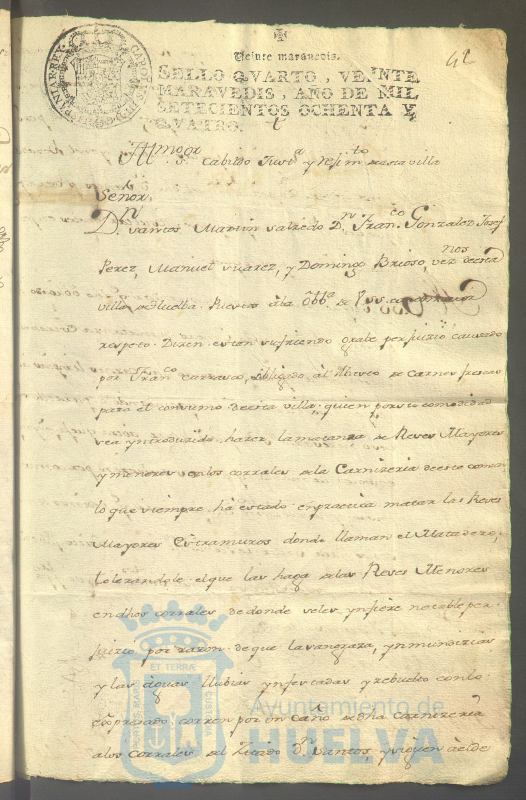 42
Veinte maravedis.
SELLO QVARTO, VEINTE
MARAVEDIS, AÑO DE MIL
SETECIENTOS OCHENTA Y
QVATRO.
Cabildo Just.a y rejim.to de esta villa
Señor
Dn Santos Martin Salzedo Dn Fran.co Gonzalez Josef
Perez, Manuel Suarez, y Domingo Brioso, vez.nos de esta
villa de Huelba. Puestos à la Obb.a de V.SS. con el mayor
respeto: Dizen esten sufriendo grabe perjuizio causado
por Fran.co Carrasco, obligado àl Abasto de Carnes frescas
para el consumo de esta villa, quien por su comodidad
sea yntroduzido hazer, la matanza de Reses Mayores
y menores en los corrales de la Carnizeria de este comun
lo que siempre hà estado en practica matar las Reses
Mayores Extramuros donde llaman el Matadero,
tolerandole el que las haga de las Reses Menores
en dhos corrales de donde se les ynfiere notable per
juizio por razon de que la sangraza, ynmundizias
y las aguas llubias ynfestadas y rebuelto con lo
expresado corren por un caño de dha carnizeria
a los corrales del Zitado Dn Santos, y siguen a el de
Ayuntamiento de
HUELVA